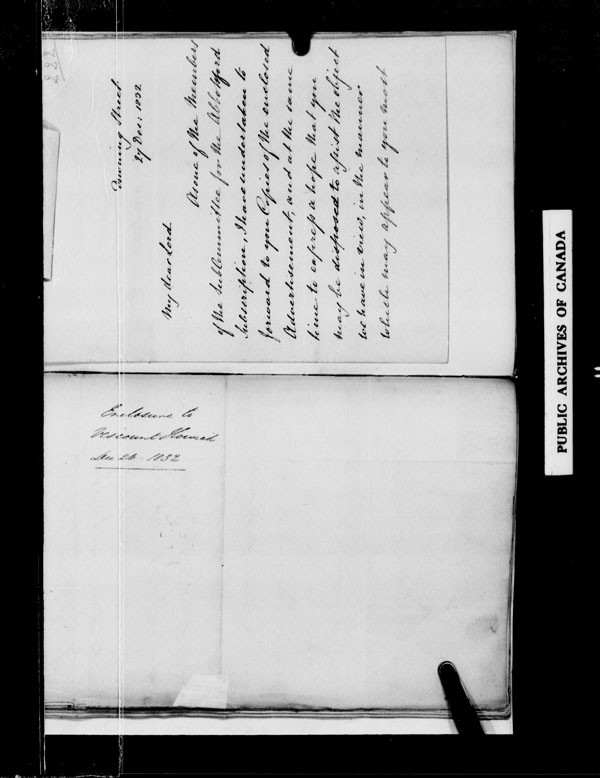 222
Downing Street
27 Dec: 1832
My dear Lord
As one of the Members
of the SubCommittee for the Abbotsford
Subscription, I have undertaken to
forward to you Copies of the enclosed
Advertisement, and at the same
time to express a hope that you
may be disposed to assist the object
we have in view, in the manner
which may appear to you most
Enclosure to
Viscount Howick
Dec 26 - 1832
PUBLIC ARCHIVES OF CANADA